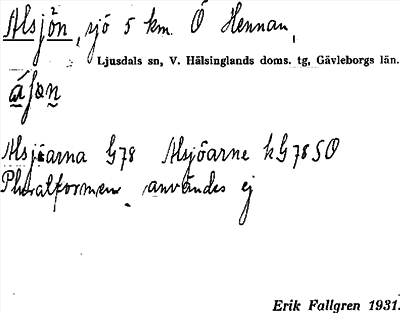 Alsjön, sjö 5 km. Ö Hennan,
Ljusdals sn, V. Hälsinglands doms. tg, Gävleborgs län.
Alsjöarna G78 Alsjöarne kG78SO
Pluralformen användes ej
Erik Fallgren 1931.